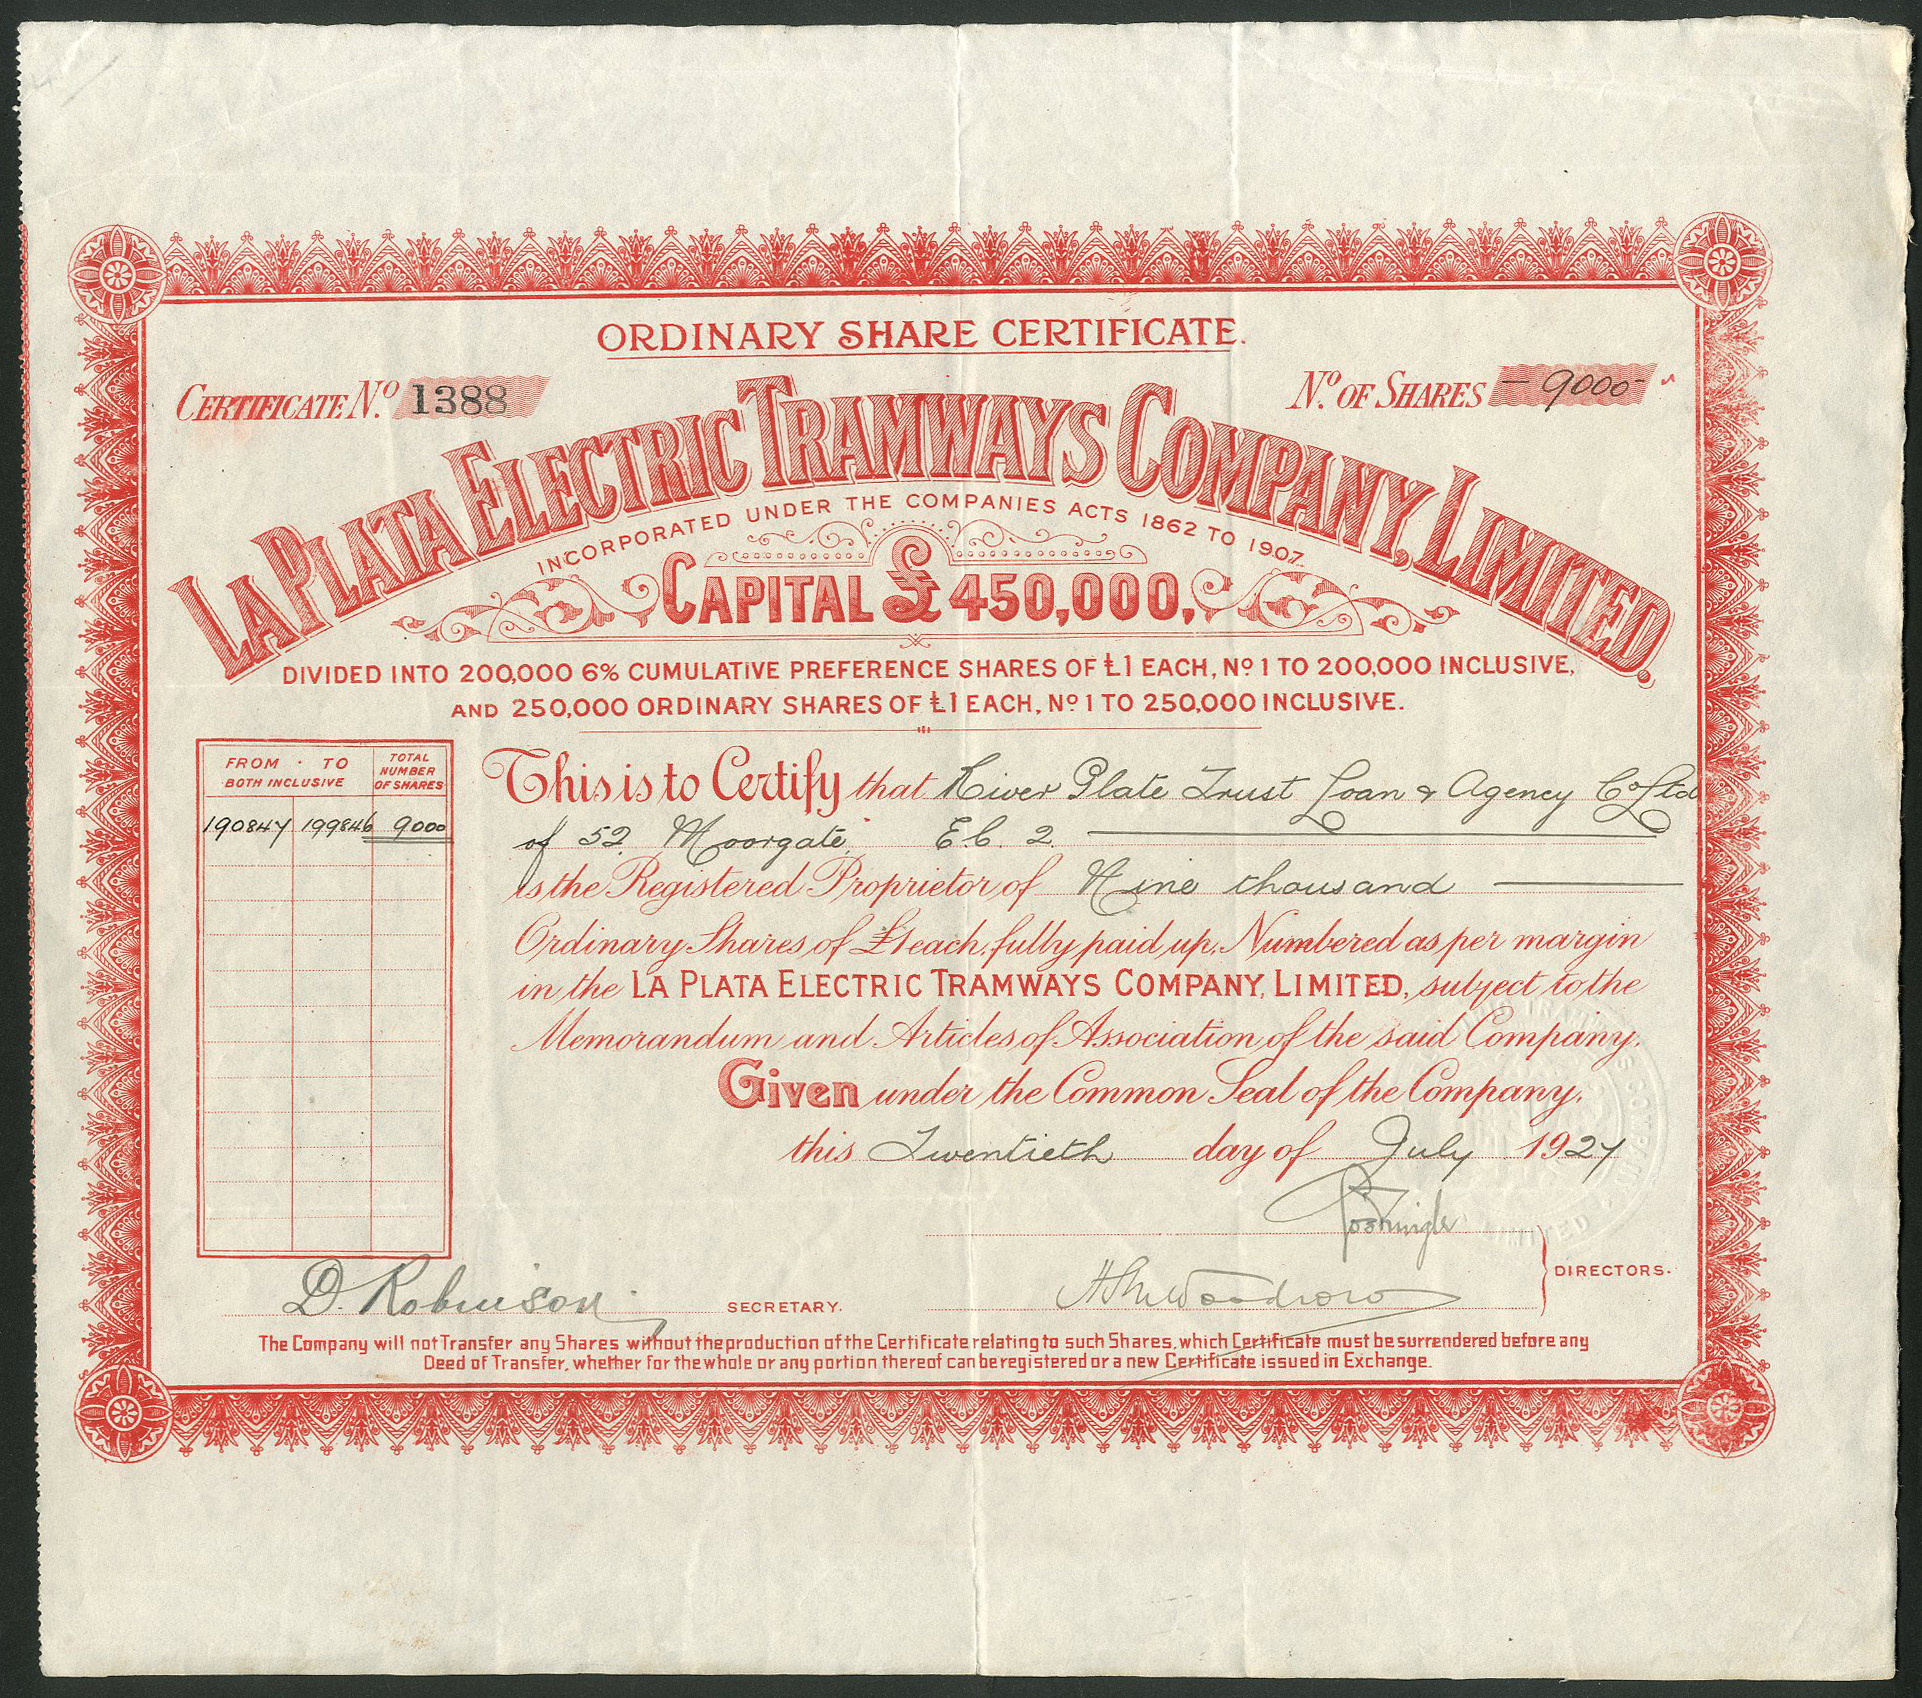 ORDINARY SHARE CERTIFICATE.
CERTIFICATE No. 1388
No. OF SHARES - 9000 -
LA PLATA ELECTRIC TRAMWAYS COMPANY, LIMITED.
INCORPORATED UNDER THE COMPANIES ACTS 1862 TO 1907.
CAPITAL £450,000,
DIVIDED INTO 200,000 6% CUMULATIVE PREFERENCE SHARES OF £1 EACH, No 1 TO 200,000 INCLUSIVE,
AND 250,000 ORDINARY SHARES OF £1 EACH, No 1 TO 250,000 INCLUSIVE.
FROM · TO
BOTH INCLUSIVE
TOTAL
NUMBER
OF SHARES
190847 199846 9000
This is to Certify that River Plate Trust Loan & Agency Co Ltd
of 52 Moorgate, E.C. 2.
is the Registered Proprietor of Nine thousand
Ordinary Shares of £1 each, fully paid up, Numbered as per margin
in the LA PLATA ELECTRIC TRAMWAYS COMPANY, LIMITED, subject to the
Memorandum and Articles of Association of the said Company.
Given under the Common Seal of the Company,
this Twentieth day of July 1927
DIRECTORS.
D. Robinson SECRETARY.
The Company will not Transfer any Shares without the production of the Certificate relating to such Shares, which Certificate must be surrendered before any
Deed of Transfer, whether for the whole or any portion thereof can be registered or a new Certificate issued in Exchange.